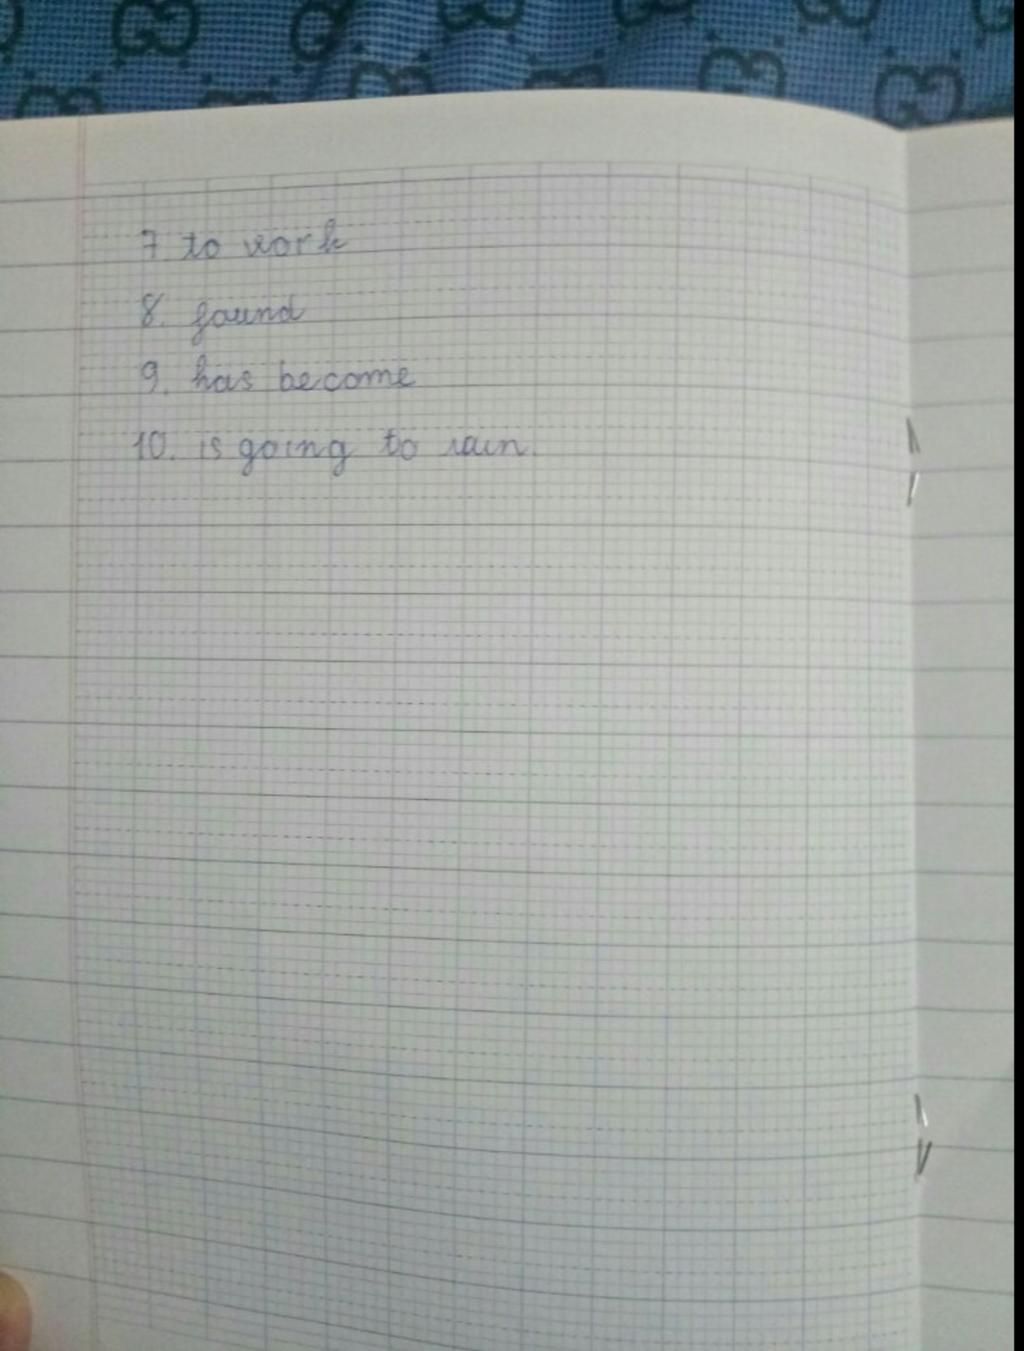 7 to work
8. found
9. has become
10. is going to rain.